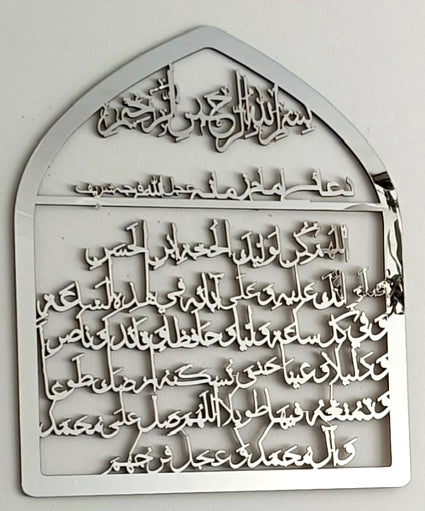 بسم الله الرحمن الرحیم
دعای امام زمانه عجل الله فرجه شریف
اللهم کن لولیک الحجة ابن الحسن
صلواتک علیه وعلی آبائه فی هذه الساعة
وفی کل ساعة ولیا وحافظا وقائدا وناصرا
ودلیلا وعینا حتی تسکنه ارضک طوعا
وتمتعه فیها طویلا اللهم صل علی محمد
وآل محمد و عجل فرجهم